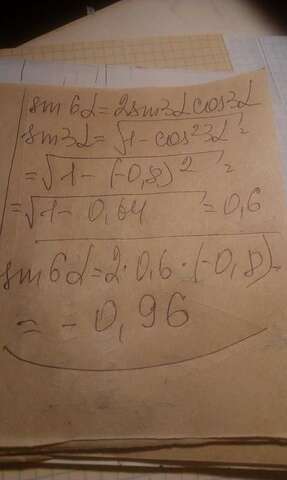 sin6α=2sin3αcos3α
sin3α=√1-cos²3α =
=√1-(-0,8)² =
=√1-0,64 =0,6
sin6α=2·0,6·(-0,8)=
=-0,96